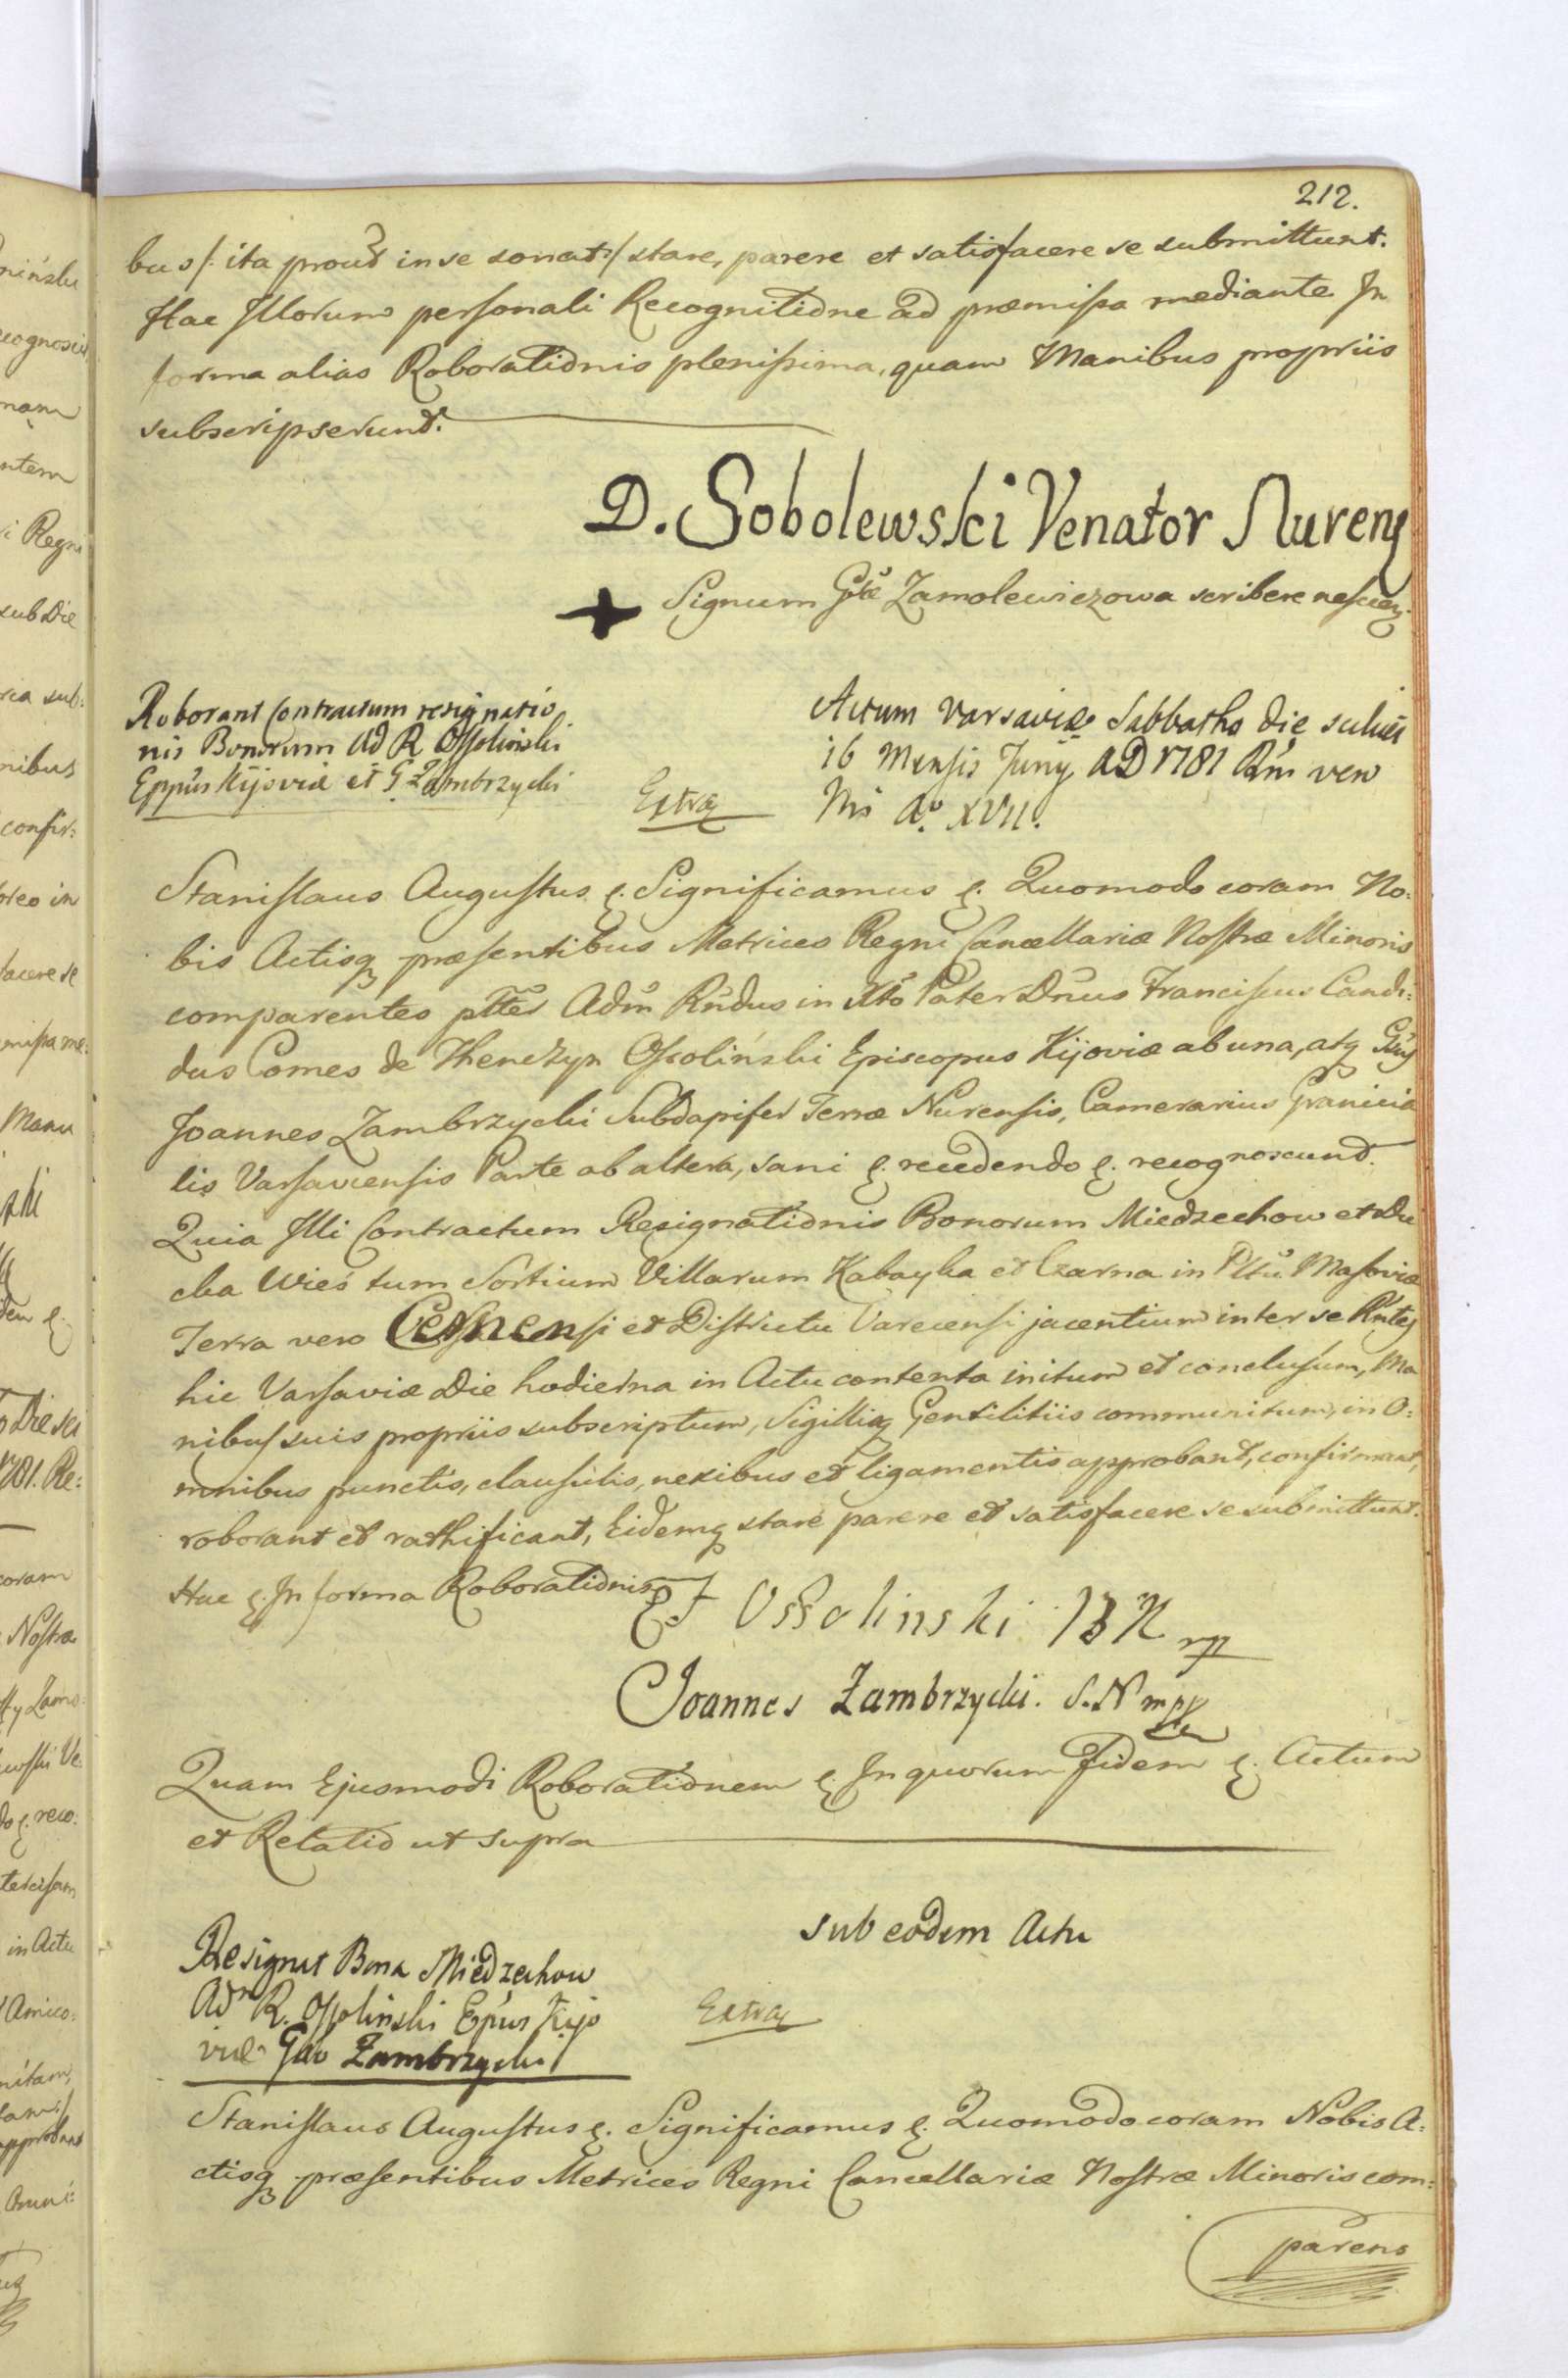 212.
bus /: ita prout in se sonat :/ stare, parere et satisfacere se submittunt.
Hac Illorum personali Recognitione ad præmissa mediante In
forma alias Roborationis plenissima, quam Manibus propriis
subscripserunt.
D. Sobolewski Venator Nurens
+ Signum Gsæ Zamolewiczowa scribere nescien.
Roborant Contractum resignatio
nis Bonorum Ad R Ossolinski
Eppus Kijoviæ et G Zambrzycki
Extra
Actum Varsaviæ Sabbatho die scilicet
16 Mensis Junij AD 1781 Rni vero
Nri Ao. XVII.
Stanislaus Augustus &. Significamus &. Quomodo coram No:
bis Actisq præsentibus Metrices Regni Cancellariæ Nostræ Minoris
comparentes pltter Adm Rndus in Xto Pater Dnus Franciscus Candi:
dus Comes de Thenczyn Ossoliński Episcopus Kijoviæ ab una, atq Gsus
Joannes Zambrzycki Subdapifer Terræ Nurensis, Camerarius Granicia
lis Varsaviensis Parte ab altera, sani &. recedendo &. recognoscunt.
Quia Illi Contractum Resignationis Bonorum Miedzechow et Du
cka Wieś tum Sortium Villarum Kabayka et Czarna in Pltu Masoviæ
Terra vero Cernensi et Districtu Varecensi jacentium inter se Rntes
hic Varsaviæ Die hodierna in Actu contenta initum et conclusum, Ma
nibus suis propriis subscriptum, Sigillisq Gentilitiis communitum, in O:
mnibus punctis, clausulis, nexibus et ligamentis approbant, confirmant,
roborant et rathificant, Eidemq stare parere et satisfacere se submittunt.
Hac &. In forma Roborationis
Ossolinski B K mp
Joannes Zambrzycki. S. N mp
Quam Ejusmodi Roborationem &. In quorum Fidem &. Actum
et Relatio ut supra
sub eodem Actu
Resignat Bona Miedzechow
Adm R. Ossolinski Epus Kijo
viæ Gso Zambrzycki
Extra
Stanislaus Augustus &. Significamus &. Quomodo coram Nobis A:
ctisq præsentibus Metrices Regni Cancellariæ Nostræ Minoris com:
parens